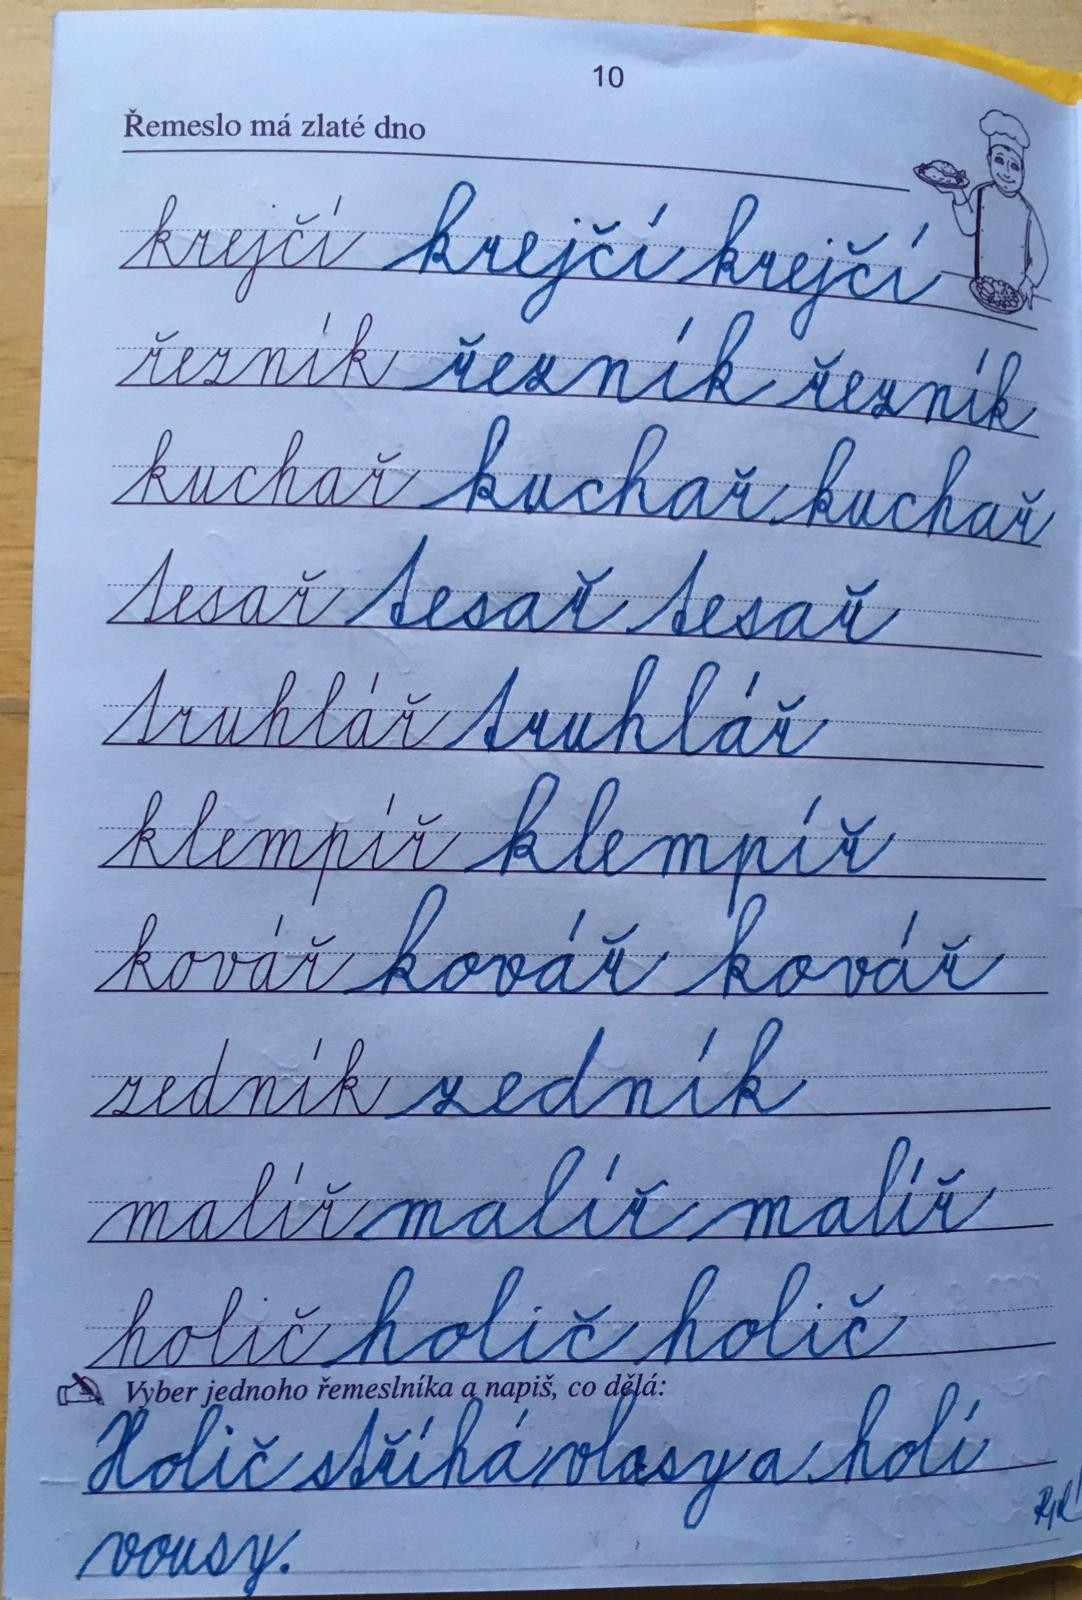 10
Řemeslo má zlaté dno
krejčí krejčí krejčí
řezník řezník řezník
kuchař kuchař kuchař
tesař tesař tesař
truhlář truhlář
klempíř klempíř
kovář kovář kovář
zedník zedník
malíř malíř malíř
holič holič holič
Vyber jednoho řemeslníka a napiš, co dělá:
Holič stříhá vlasy a holí
vousy.